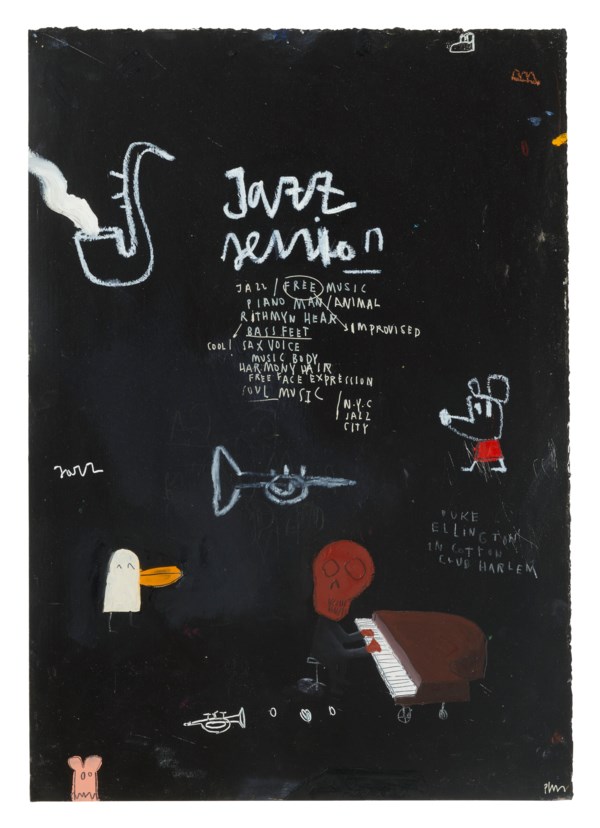 Jazz
session
JAZZ / FREE MUSIC
PIANO MAN / ANIMAL
RITHMYN HEAR
IMPROVISED
BASS FEET
COOL! SAX VOICE
MUSIC BODY
HARMONY HAIR
FREE FACE EXPRESSION
SOUL MUSIC
N.Y.C
JAZZ
CITY
Jazz
DUKE
ELLINGTON
IN COTTON
CLUB HARLEM